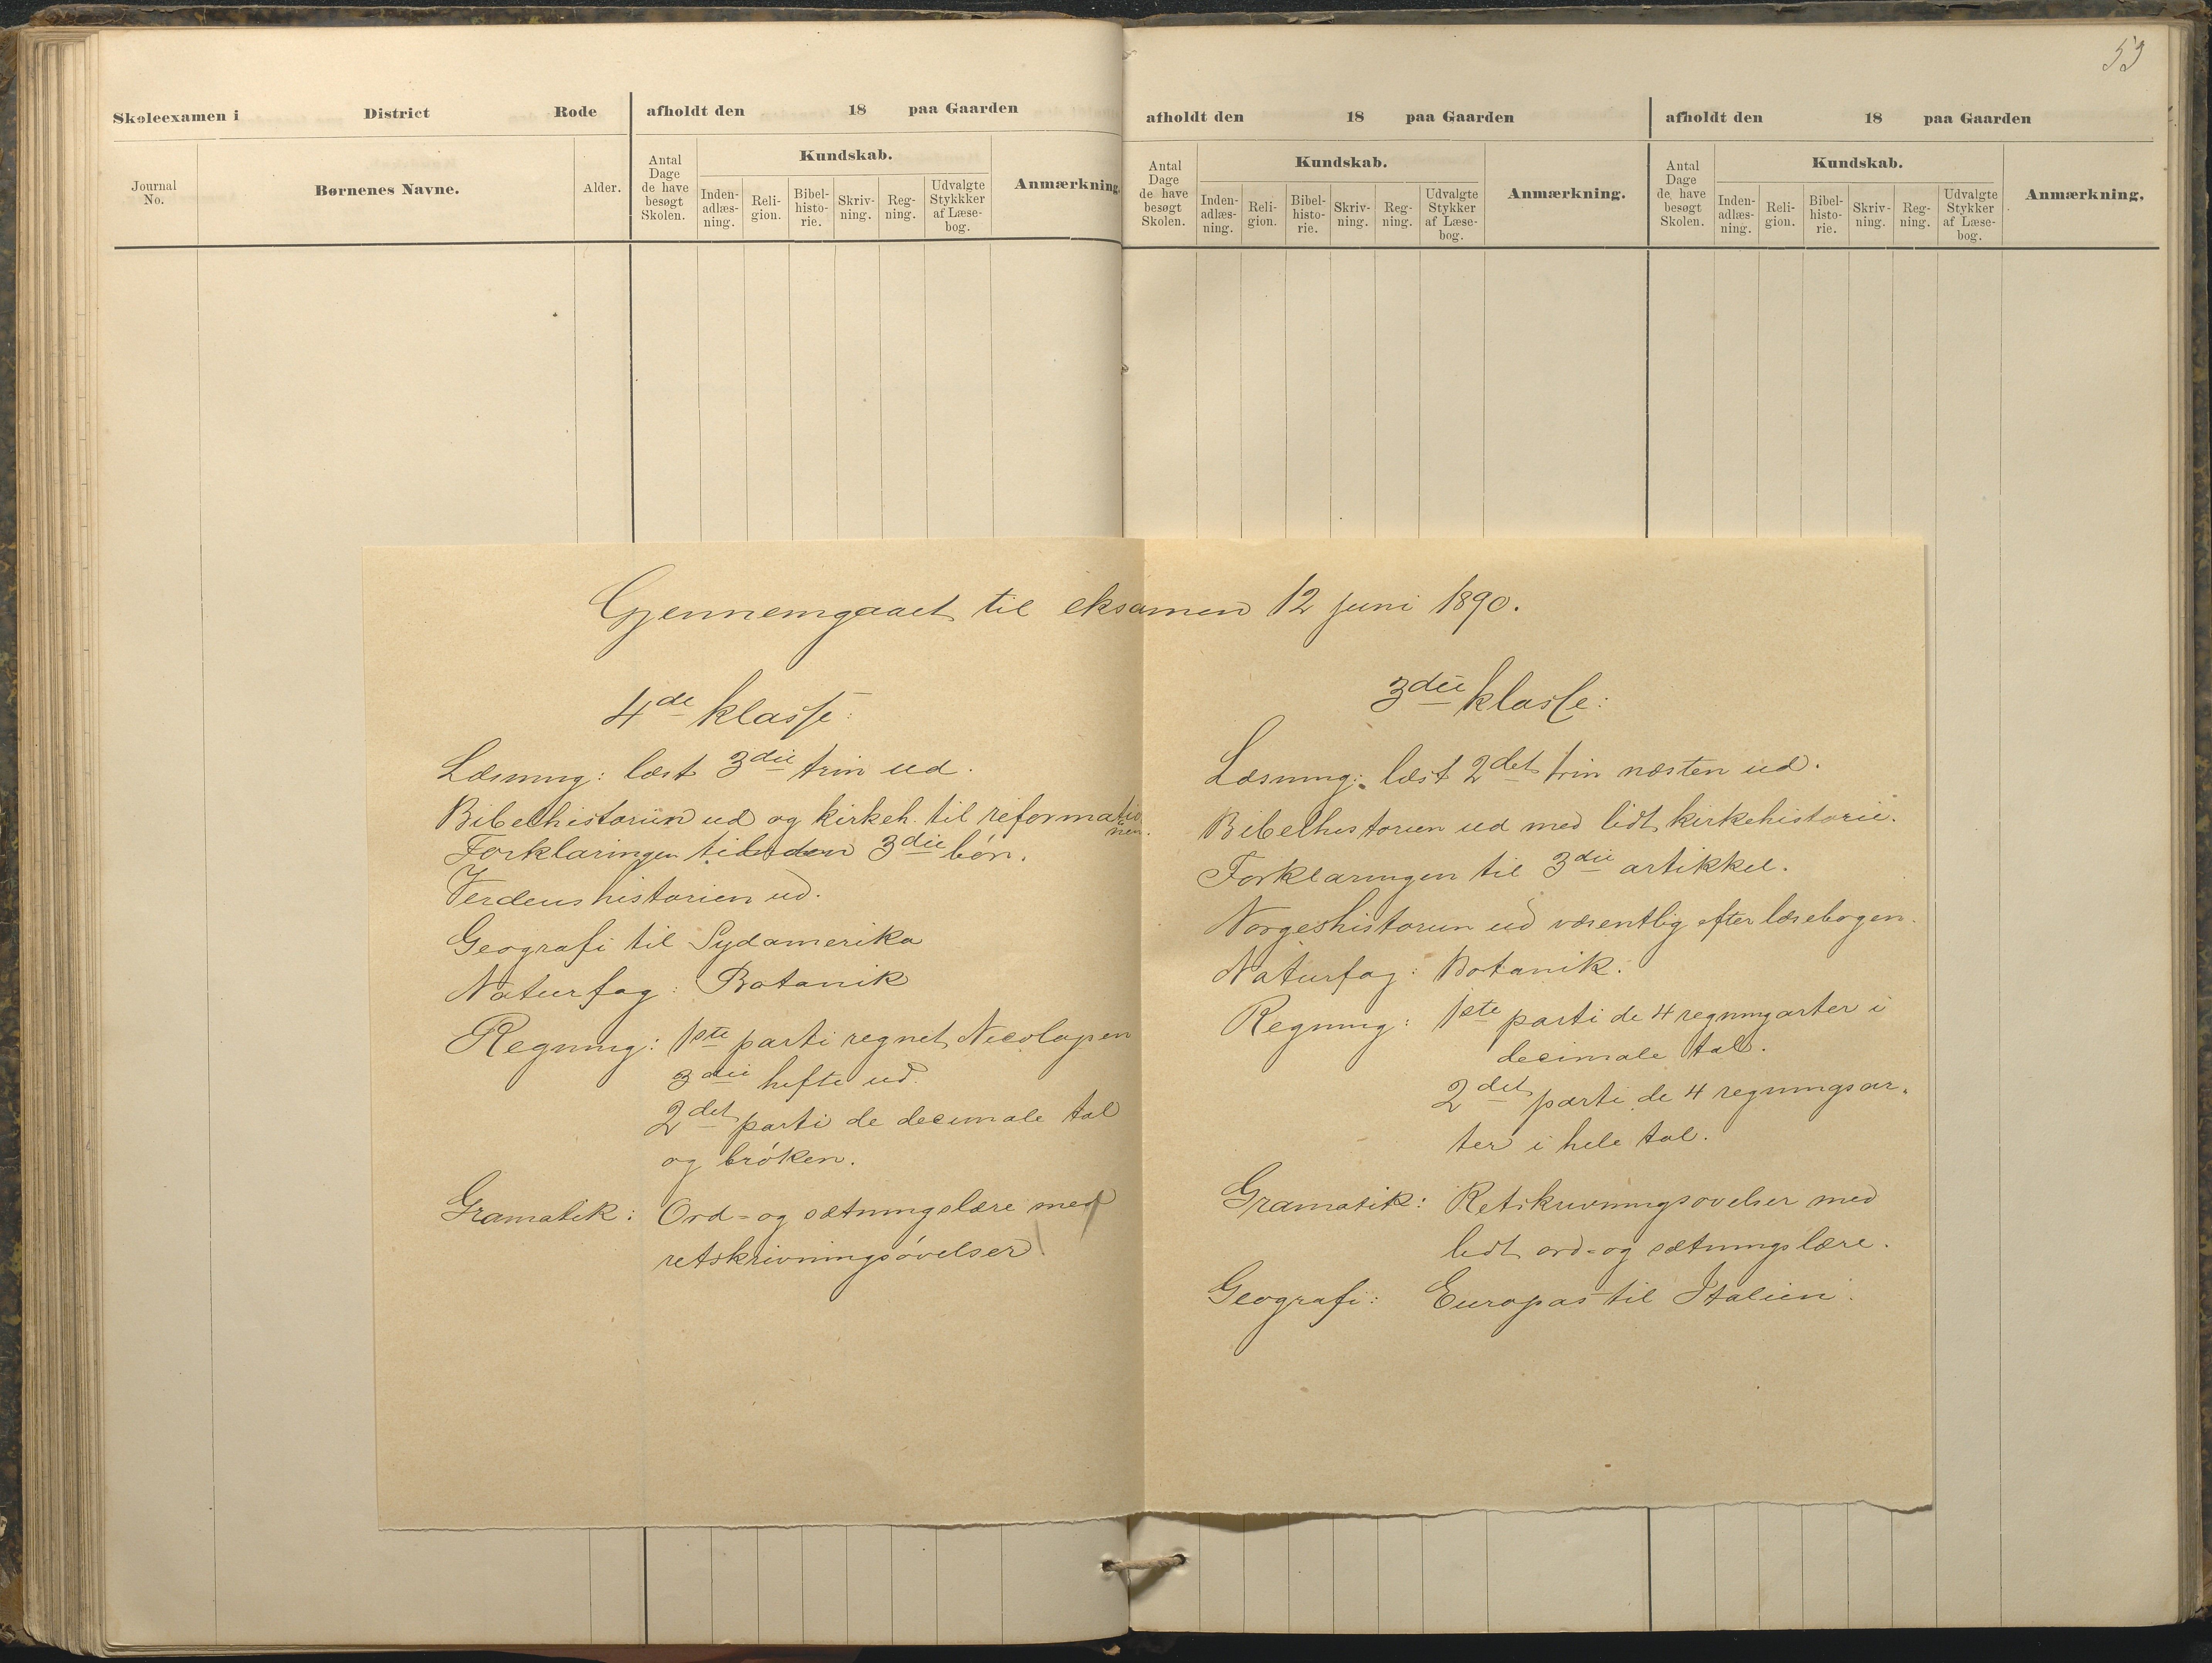 53
Skoleexamen i District Rode
afholdt den 18 paa Gaarden
afholdt den 18 paa Gaarden
afholdt den 18 paa Gaarden
Journal No.
Børnenes Navne.
Alder.
Antal Dage de have besøgt Skolen.
Kundskab.
Inden-adlæs-ning.
Reli-gion.
Bibel-histo-rie.
Skriv-ning.
Reg-ning.
Udvalgte Stykkker af Læse-bog.
Anmærkning.
Antal Dage de have besøgt Skolen.
Kundskab.
Inden-adlæs-ning.
Reli-gion.
Bibel-histo-rie.
Skriv-ning.
Reg-ning.
Udvalgte Stykker af Læse-bog.
Anmærkning.
Antal Dage de have besøgt Skolen.
Kundskab.
Inden-adlæs-ning.
Reli-gion.
Bibel-histo-rie.
Skriv-ning.
Reg-ning.
Udvalgte Stykker af Læse-bog.
Anmærkning.
Gjennemgaaet til eksamen 12 juni 1890.
4de klasse:
Læsning: læst 3die trin ud.
Bibelhistorien ud og kirkeh. til reformatio
nen.
Forklaringen til den 3die bøn.
Verdenshistorien ud.
Geografi til Sydamerika
Naturfag: Botanik
Regning: 1ste parti regnet Nicolaysen
3die hefte ud.
2det parti de decimale tal
og brøken.
Gramatik: Ord- og sætningslære med
retskrivningsøvelser
3die klasse:
Læsning: læst 2det trin næsten ud.
Bibelhistorien ud med lidt kirkehistorie.
Forklaringen til 3die artikkel.
Norgeshistorien ud væsentlig efter læsebogen.
Naturfag: Botanik.
Regning: 1ste parti de 4 regningarter i
decimale tal.
2det parti de 4 regningsar-
ter i hele tal.
Gramatik: Retskrivningsøvelser med
lidt ord- og sætningslære.
Geografi: Europas til Italien.